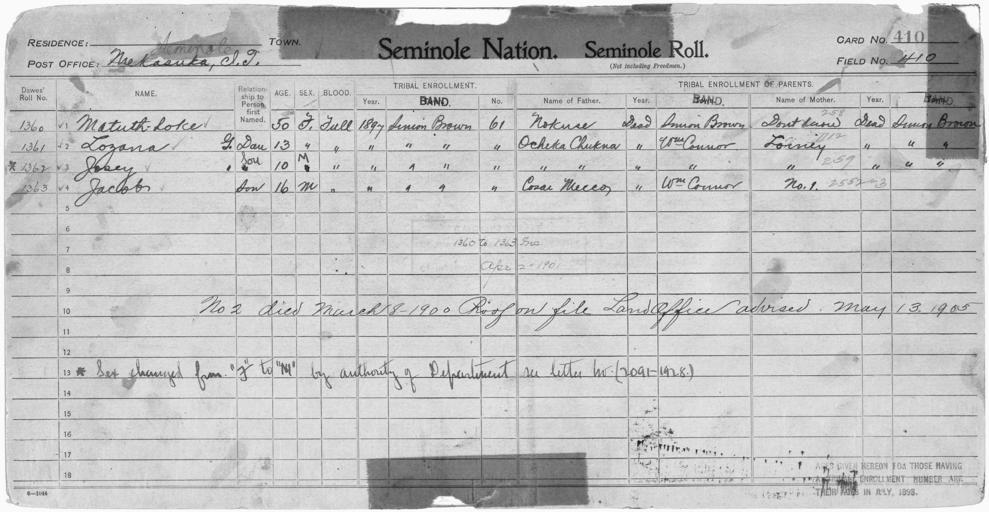 RESIDENCE: Seminole TOWN.
POST OFFICE: Mekasuka, I.T.
Seminole Nation. Seminole Roll.
(Not including Freedmen.)
CARD NO. 410
FIELD NO. 410
Dawes' Roll No. NAME. Relationship to Person first Named. AGE. SEX. BLOOD. TRIBAL ENROLLMENT. Year. BAND. No. TRIBAL ENROLLMENT OF PARENTS. Name of Father. Year. BAND. Name of Mother. Year. BAND.
1360 √1 Matuth-hoke 50 F. Full 1897 Simon Brown 61 Nokuse Dead Simon Brown Dont know Dead Simon Brown
1361 √2 Lozana G. Dau 13 " " " " " " Ocheka Chukna " Wm Connor Loiney " " "
* 1362 √3 Josey " Son 10 M " " " " " " " " " " 259 " " "
1363 √4 Jacob Son 16 M " " " " " Cosar Meccos " Wm Connor No. 1.
5
6
7 1360 to 1363 Inc
8 Apr 2-1901
9
10 No 2 died March 18-1900 Proof on file Land Office advised. May 13, 1905
11
12
13 * Sex changed from "F" to "M" by authority of Department see letter no. (2091-1928.)
14
15
16
17
18
6-1044
AGES GIVEN HEREON FOR THOSE HAVING
ENROLLMENT NUMBER ARE
THEIR AGES IN JULY, 1898.